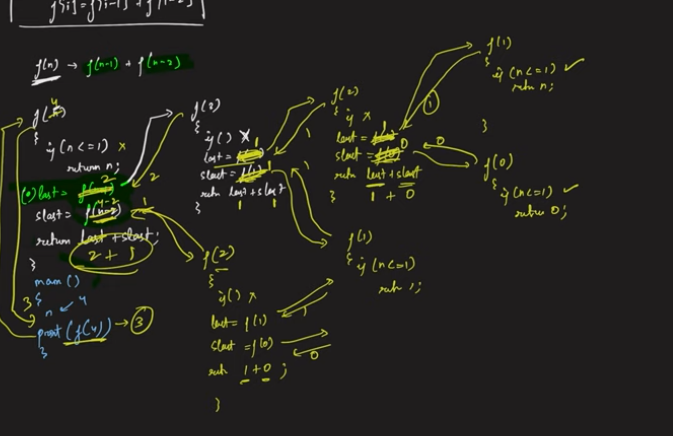 f[i] = f[i-1] + f[i-2]
f(n) → f(n-1) + f(n-2)
f(4)
{ if (n<=1) x
return n;
last = 2
slast = f(4-2) 1
return last + slast;
2 + 1
}
main()
{
n ← 4
print (f(4)) → 3
}
3
2
{
if () x
last = 1
slast = 1
retn last + slast
1 1
}
f(2)
{ if x
last = 1
slast = 0
retn last + slast
1 + 0
}
1
f(1)
{ if (n<=1) ✓
retn n;
}
1
0
f(0)
{ if (n<=1) ✓
return 0;
f(1)
{ if (n<=1)
retn 1;
1
f(2)
{
if () x
last = f(1)
slast = f(0)
retn 1 + 0 ;
}
1
0